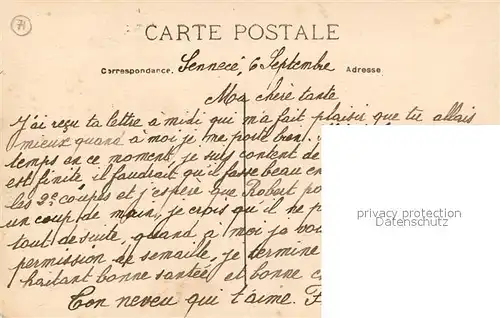 71
CARTE POSTALE
Correspondance. Sennecé, 6 Septembre Adresse
Ma chère tante
J'ai reçu ta lettre à midi qui m'a fait plaisir que tu allais
mieux quand à moi je me porte bien.
temps en ce moment, je suis content de
est finite il faudrait qu'il fasse beau
les 2e coupes et j'espère que Robert
un coup de main, je crois qu'il ne
tout de suite, quand à moi
permission de semaille, je termine
haitant bonne santée et bonne
Ton neveu qui t'aime.
privacy protection
Datenschutz